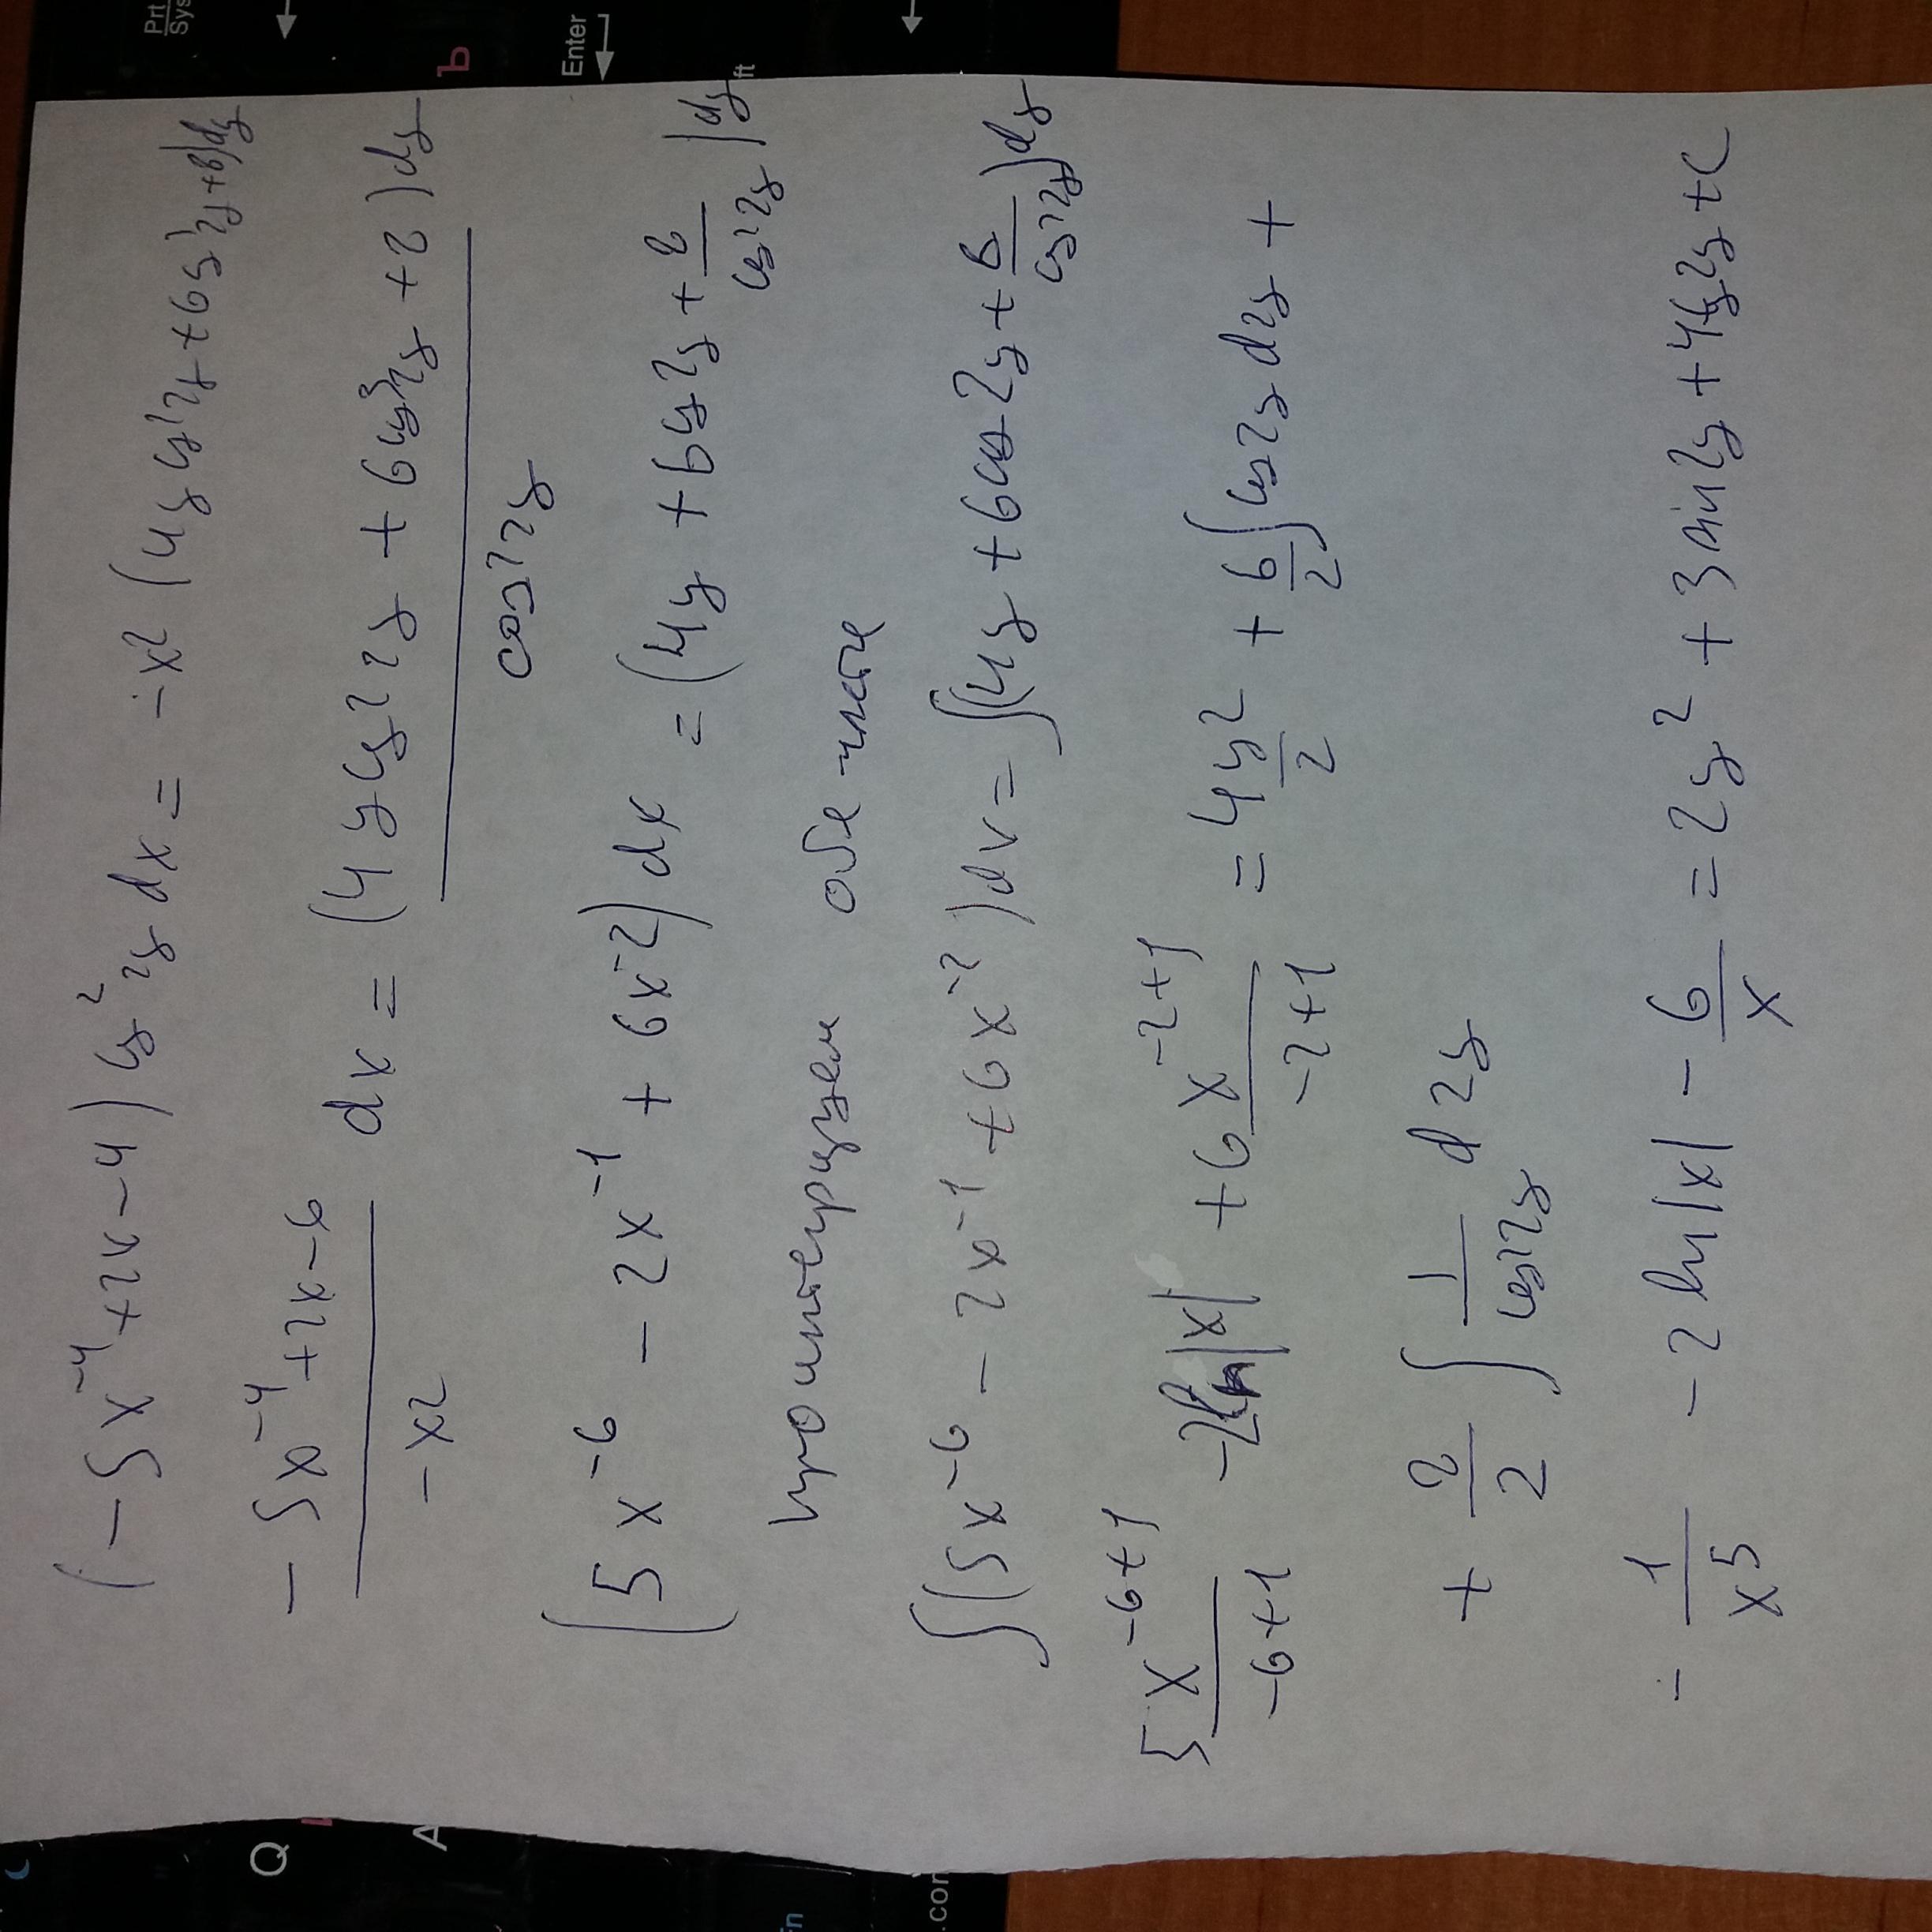 (-5x⁻⁴+2x-4) cos² 2y dx = -x2 (4y cos²2y+6cos³2y+8)dy
-5x⁻⁴+2x-6 / -x2 dx = (4y cos²2y + 6cos³2y +2)dy / cos²2y
(5x⁻⁶ - 2x⁻¹ + 6x⁻²)dx = (4y + 6cos2y + 8/cos²2y)dy
проинтегрируем обе части
∫(5x⁻⁶ - 2x⁻¹ + 6x⁻²)dx = ∫(4y + 6cos2y + 8/cos²2y)dy
5x⁻⁶⁺¹/-6+1 -2ln|x| + 6x⁻²⁺¹/-2+1 = 4y²/2 + 6/2∫cos2y d2y +
+ 8/2 ∫ 1/cos²2y d2y
- 1/x5 - 2ln|x| - 6/x = 2y² + 3sin2y + 4tg2y + C
Prt
Sys
Enter
ft
Ъ
Q
A
.com